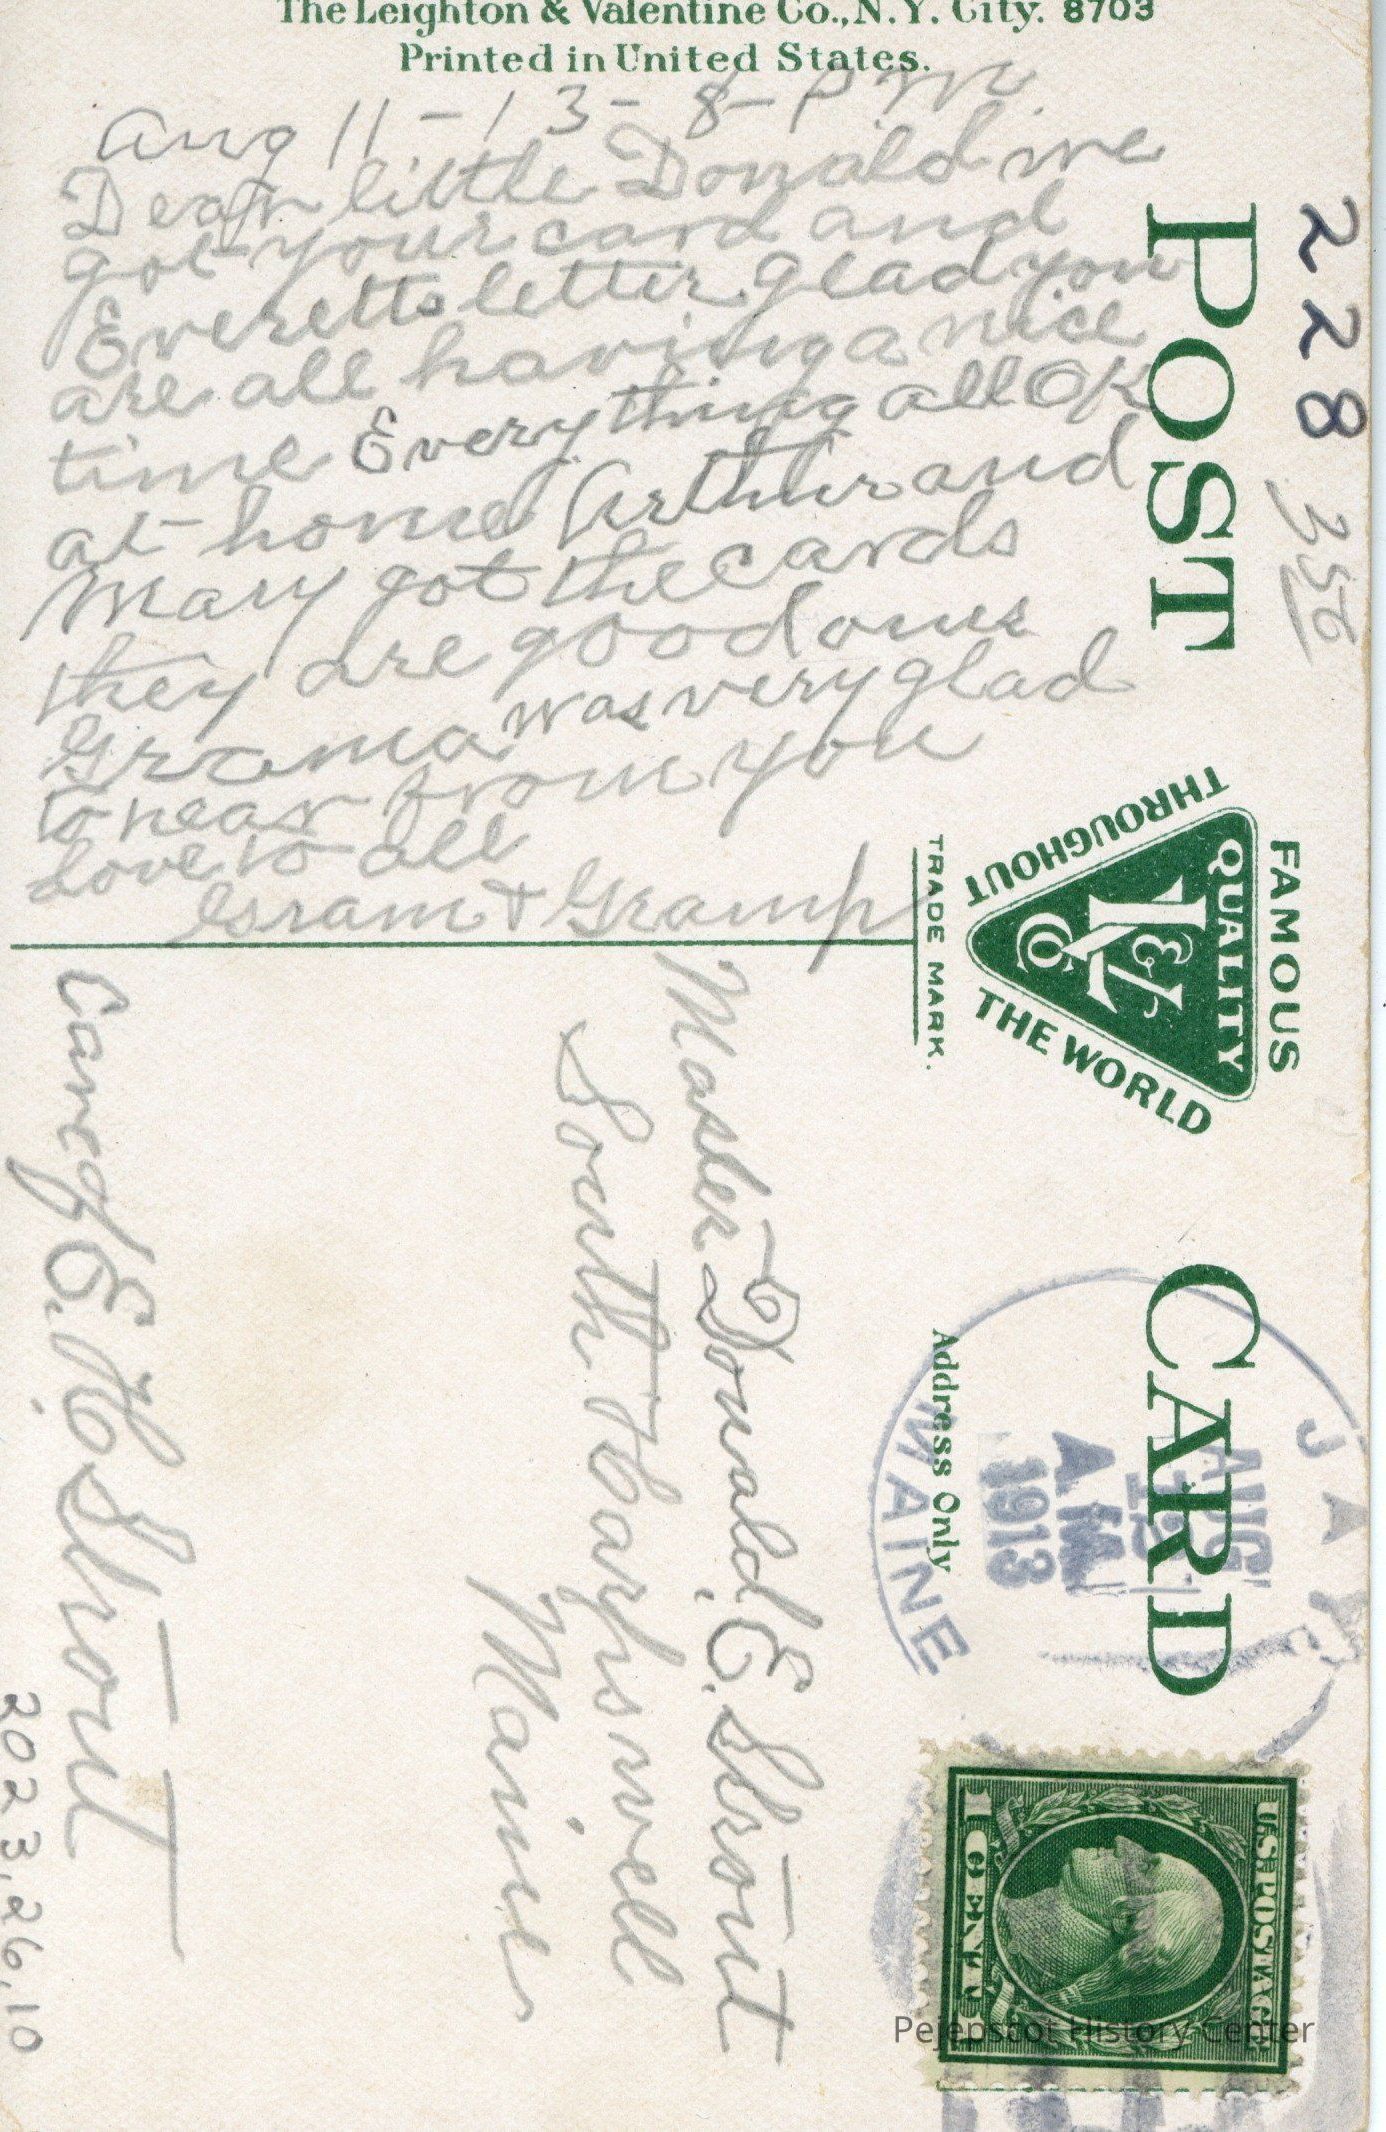 The Leighton & Valentine Co., N.Y. City. 8703
Printed in United States.
Aug 11-13-8-P m
Dear little Donald we
got your card and
Everetts letter glad you
are all having a nice
time Everything all OK
at home Arthur and
Mary got the cards
they are good ones
Grama was very glad
to hear from you
love to all
Gram & Gramp
POST CARD
228
356
FAMOUS
QUALITY
THROUGHOUT
THE WORLD
L & V
Co
TRADE MARK.
Address Only
JAY
MAINE
AUG
12
AM
1913
U.S. POSTAGE
1 CENT 1
Master Donald E. Strout
South Harpswell
Maine
Care of E. H. Strout
2023.26.10
Pejepscot History Center